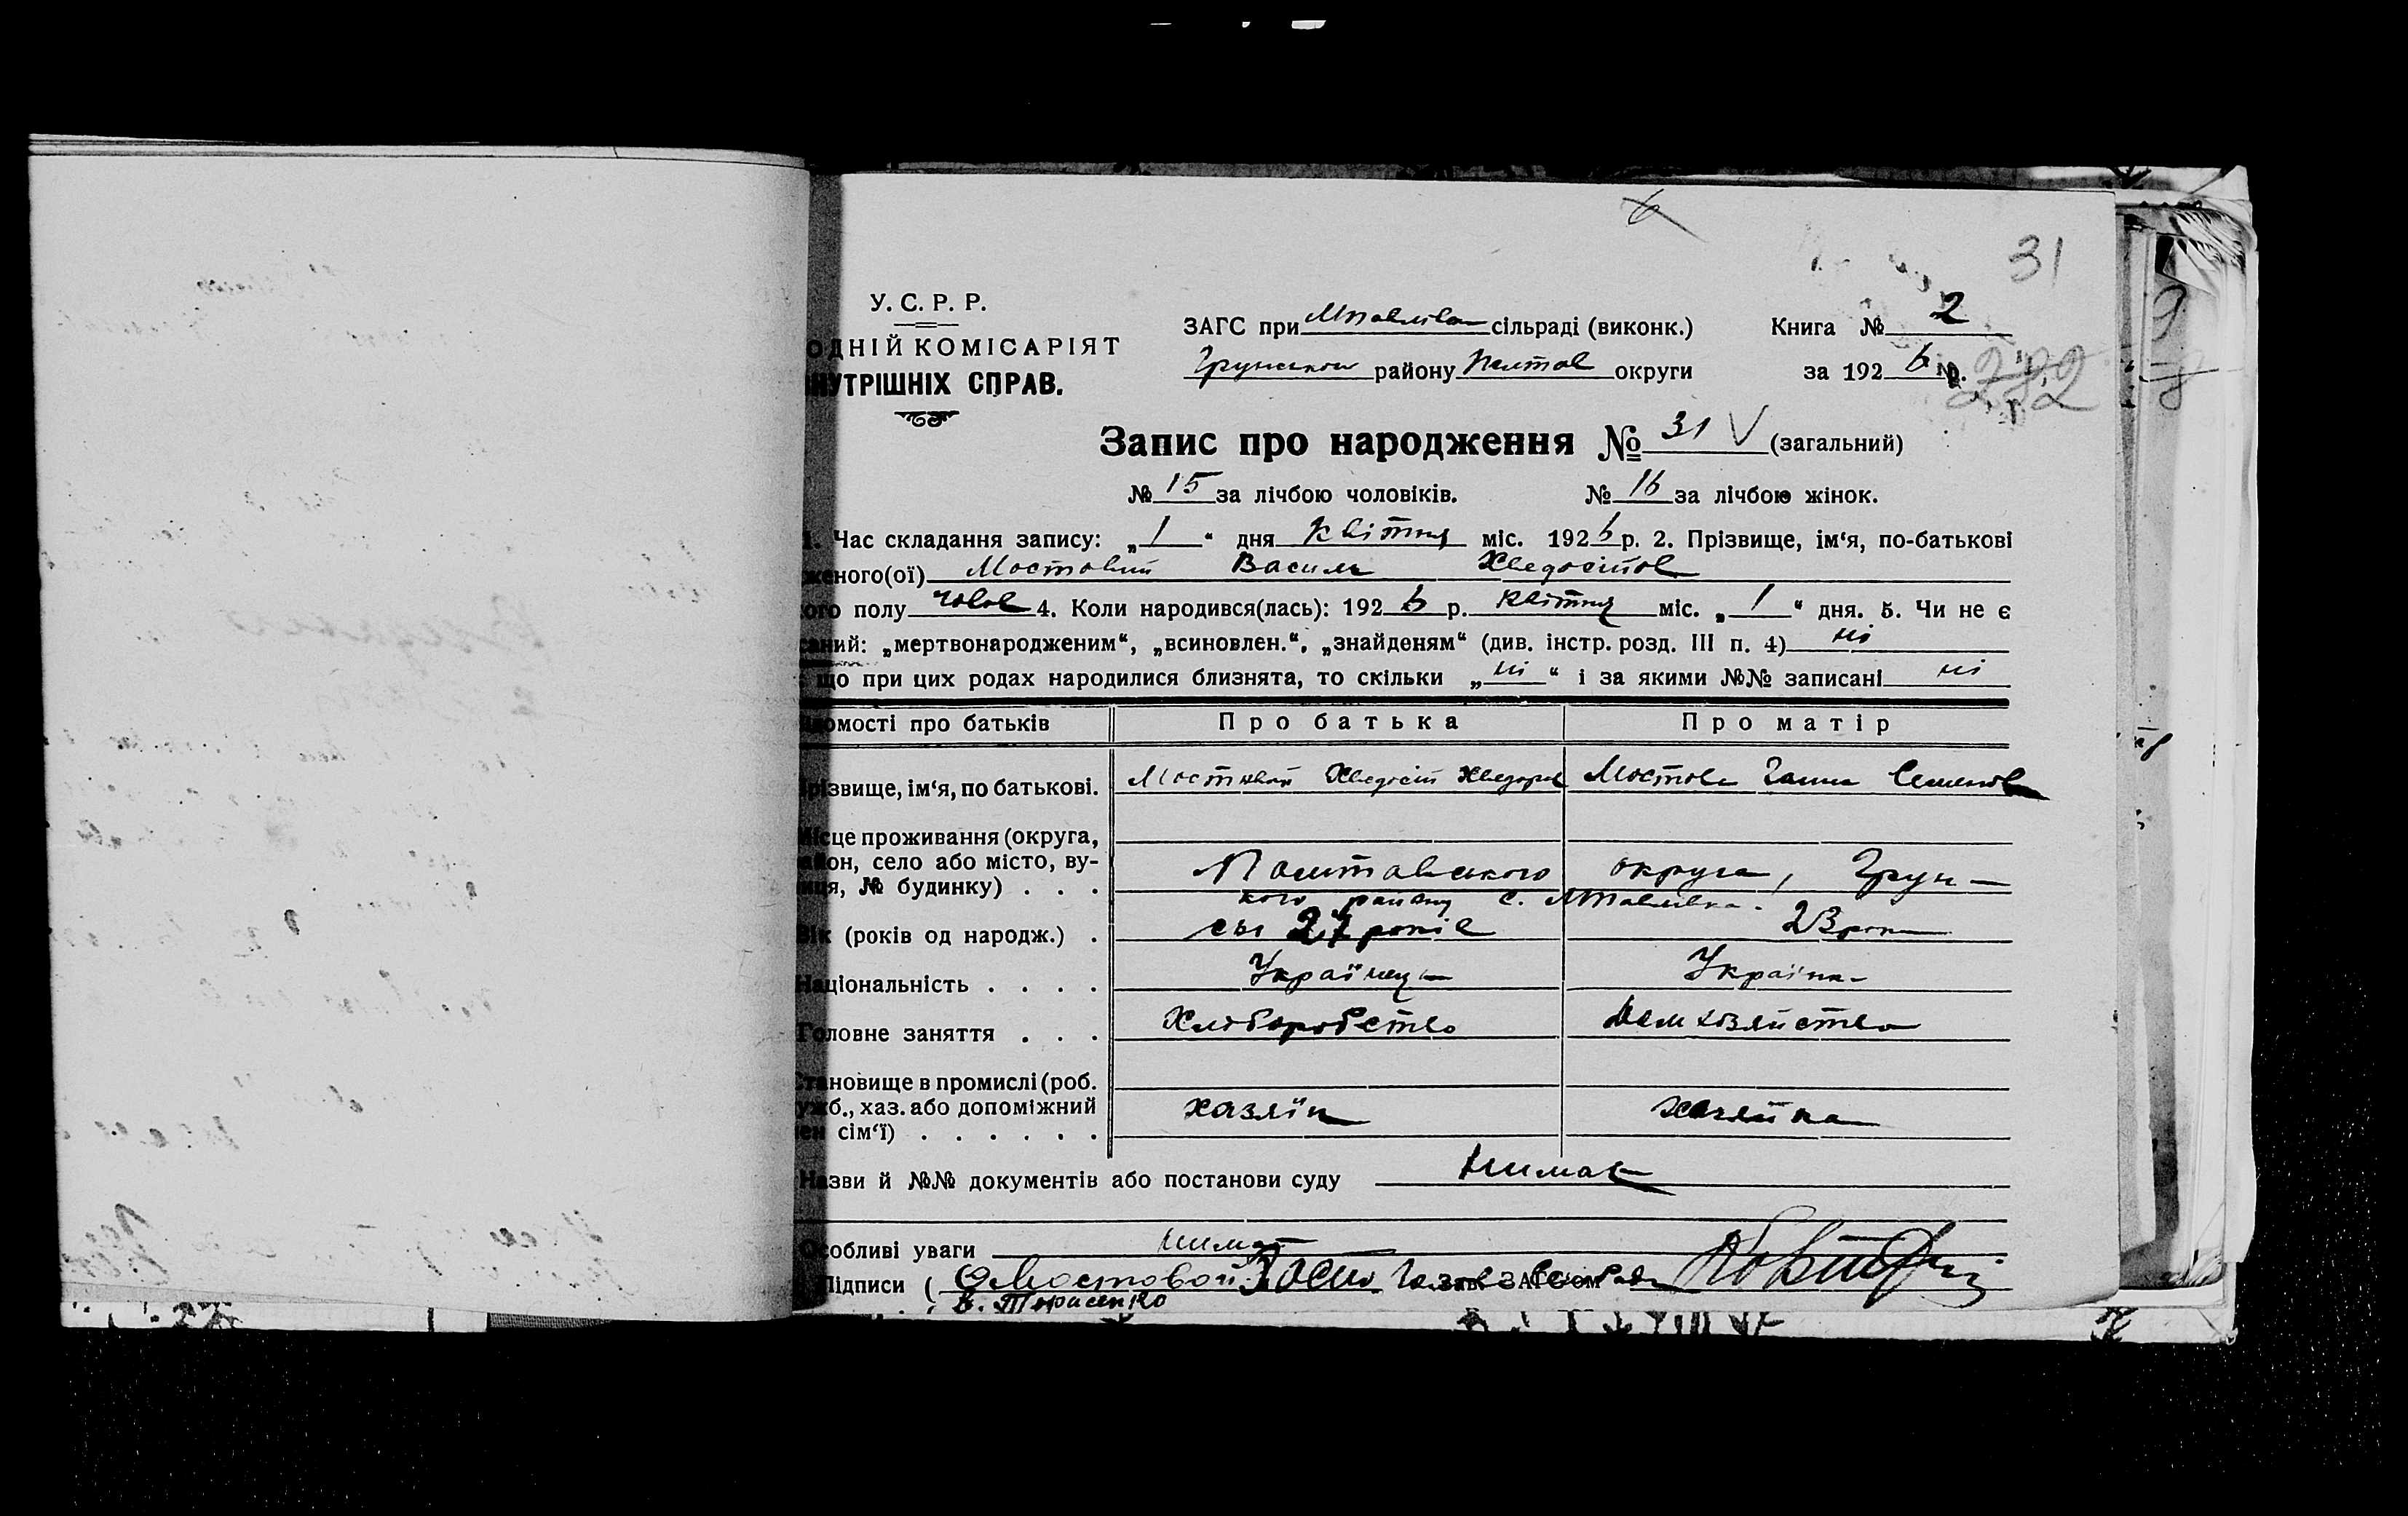 31
У. С. Р. Р.
ОДНІЙ КОМІСАРІЯТ
НУТРІШНІХ СПРАВ.
ЗАГС при сільраді (виконк.)
району Полтов округи
Книга № 2
за 1926 р.
Запис про народження № 31 (загальний)
№ 15 за лічбою чоловіків. № 16 за лічбою жінок.
1. Час складання запису: „1“ дня Квітня міс. 1926 р. 2. Прізвище, ім‘я, по-батькові
женого(ої) Мостовий Василь Хведосітов
ого полу чолов 4. Коли народився(лась): 1926 р. квітня міс. „1“ дня. 5. Чи не є
саний: „мертвонародженим“, „всиновлен.“, „знайденям“ (див. інстр. розд. III п. 4) ні
що при цих родах народилися близнята, то скільки „ні“ і за якими №№ записані ні
домості про батьків Про батька Про матір
різвище, ім‘я, по батькові. Мостовий Хведосій Хведоров Мостова Ганна Семенов
Місце проживання (округа,
район, село або місто, ву-
лиця, № будинку) . . . Полтавського округа, Грун-
кого району с.
Вік (років од народж.) . 27 років 23 роки
Національність . . . . Українець Українка
Головне заняття . . . Хліборобство Домхозяйство
Становище в промислі (роб.
ужб., хаз. або допоміжний
ен сім‘ї) . . . . . . хазяїн хазяйка
Назви й №№ документів або постанови суду нимає
Особливі уваги нимає
Підписи ( Мостовой ЗАГС‘ом
В. Тарасенко